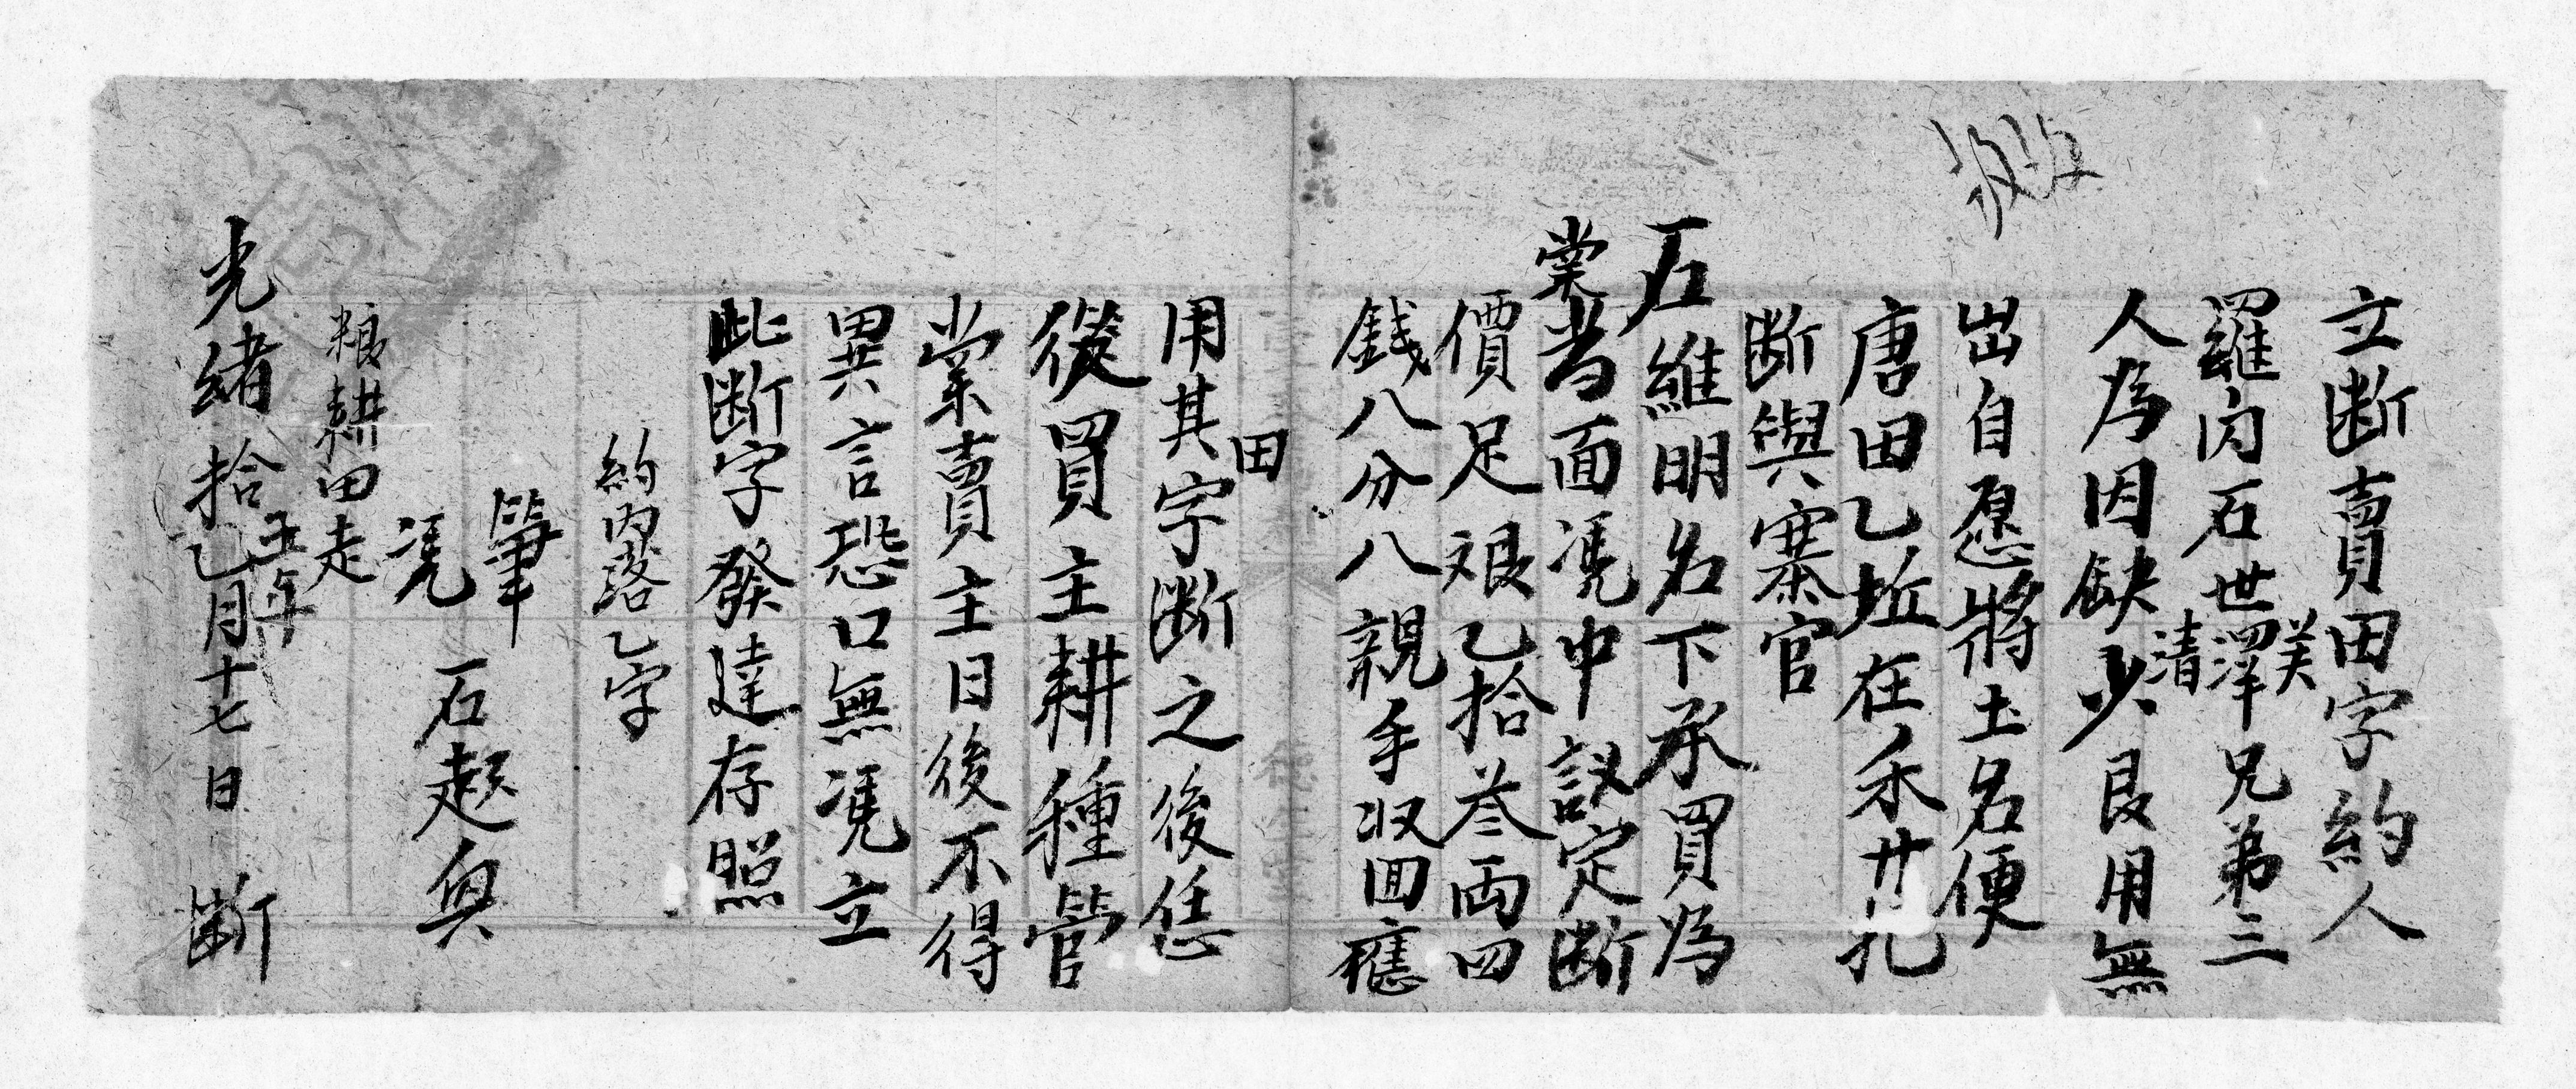 立断賣田字約人
羅內石世澤美清兄弟三
人為因缺少艮用無
出自愿將土名便
唐田乙坵在禾廿扎
断與寨官
石維明名下承買為
業當面凴中議定断
價足艮乙拾叁両四
錢八分八親手収回應
用其田字断之後恁
從買主耕種管
業賣主日後不得
異言恐口無凴立
此断字發達存照
約內落乙字
筆
凴 石起奐
粮耕田走
光緒拾五年乙月十七日 断